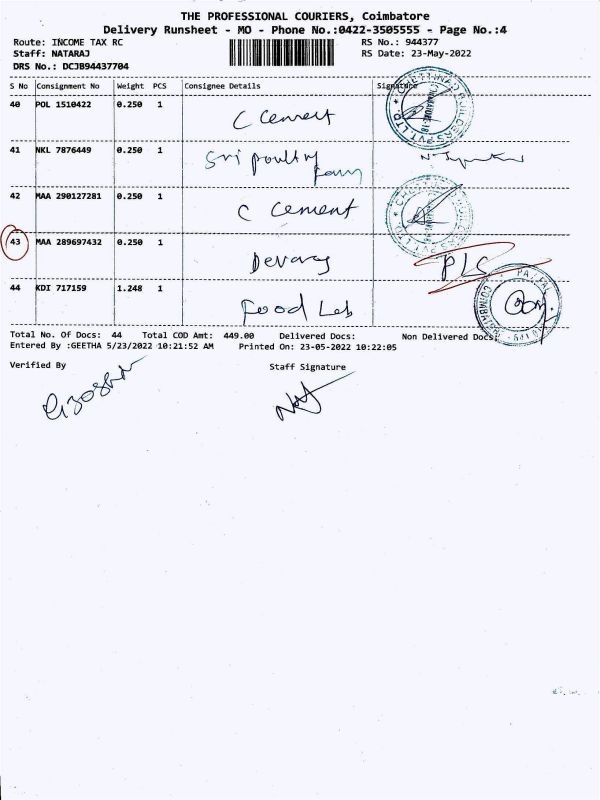 THE PROFESSIONAL COURIERS, Coimbatore
Delivery Runsheet - MO - Phone No.:0422-3505555 - Page No.:4
Route: INCOME TAX RC RS No.: 944377
Staff: NATARAJ RS Date: 23-May-2022
DRS No.: DCJB94437704
S No Consignment No Weight PCS Consignee Details Signature
40 POL 1510422 0.250 1
C Cement
41 NKL 7876449 0.250 1
Sri poultry
Farm
42 MAA 290127281 0.250 1
C Cement
43 MAA 289697432 0.250 1
Devaraj
44 KDI 717159 1.248 1
Food Lab
Total No. Of Docs: 44 Total COD Amt: 449.00 Delivered Docs: Non Delivered Docs:
Entered By :GEETHA 5/23/2022 10:21:52 AM Printed On: 23-05-2022 10:22:05
Verified By Staff Signature